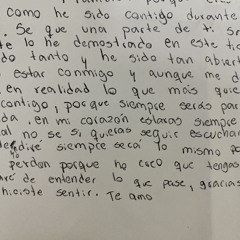 como he sido contigo durante
. Se que una parte de ti
te lo he demostrado en este
do tanto y he sido tan
estar conmigo y aunque me d
en realidad lo que más quie
contigo, porque siempre serás par
da. en mi corazón estaras siempre
al no se si quieras seguir escuchar
siempre será lo mismo
perdon porque no creo que tengas
aré de entender lo que pase, gracias
hiciste sentir. Te amo